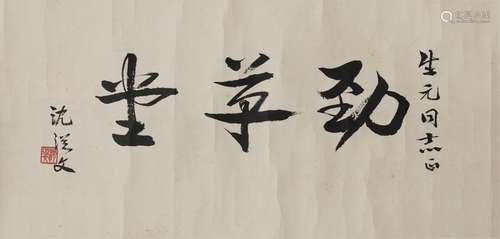 生元同志正
劲草堂
沈从文